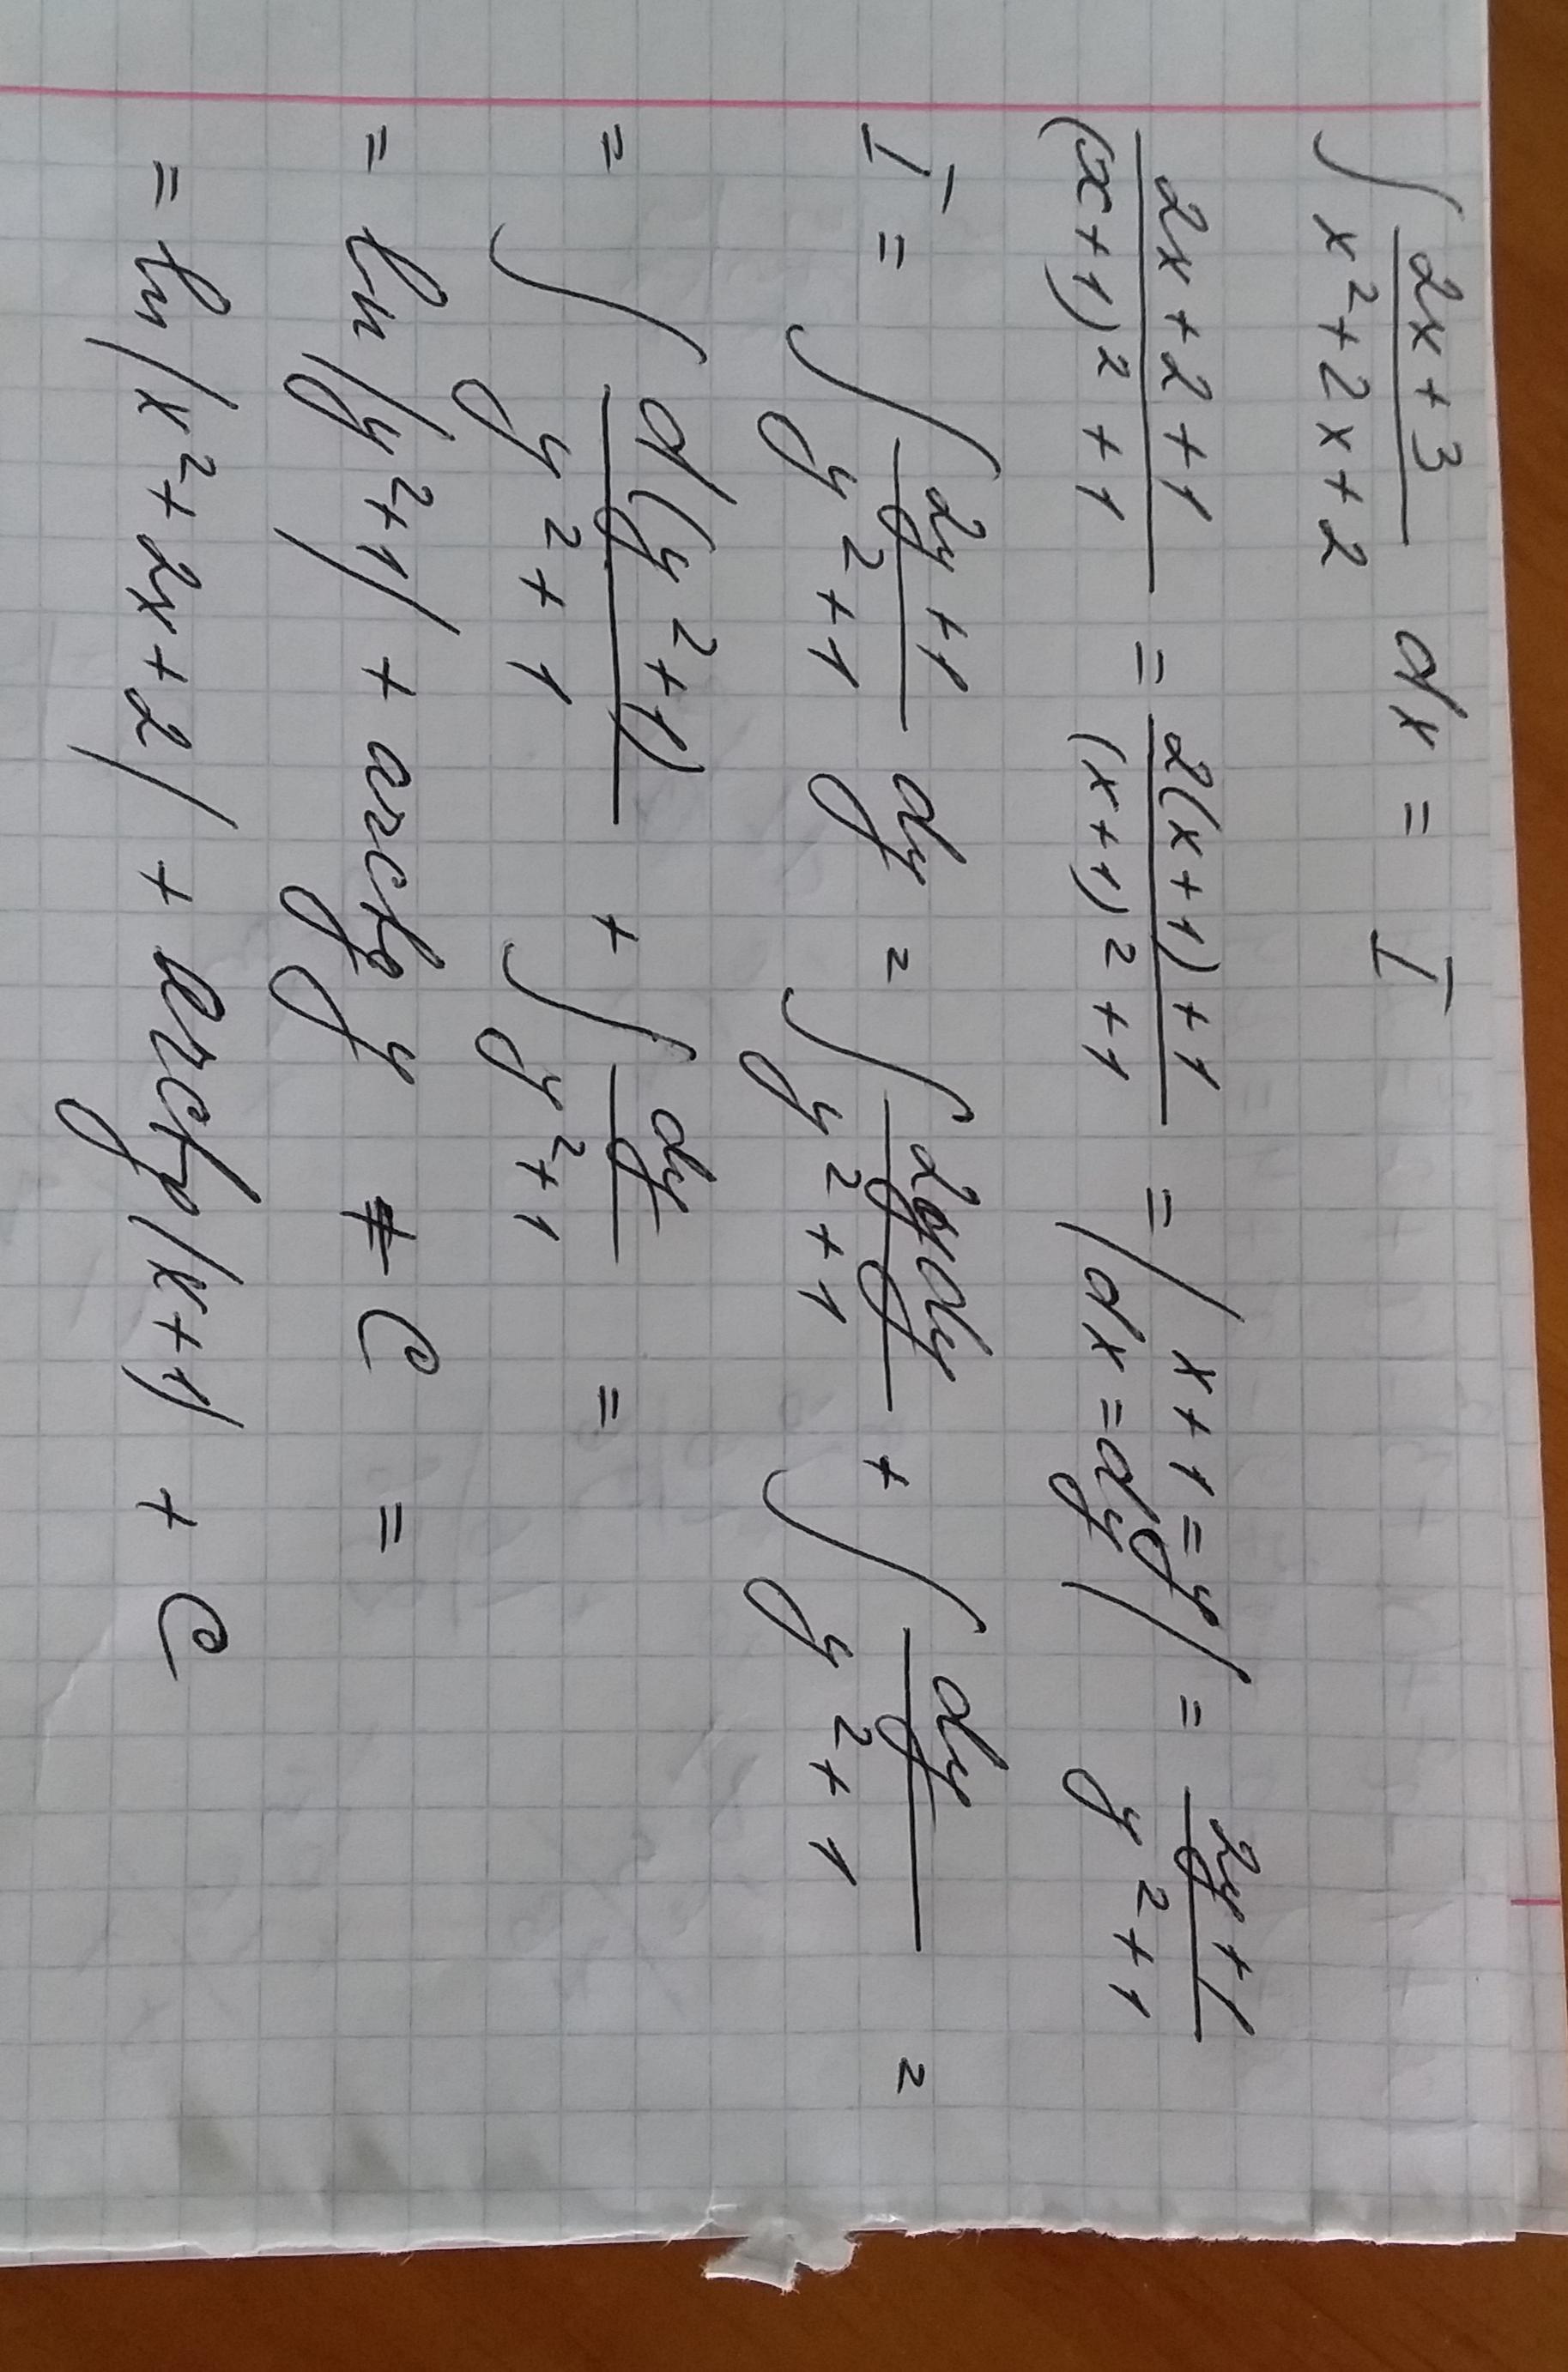 ∫ (2x+3)/(x²+2x+2) dx = I
(2x+2+1)/((x+1)²+1) = (2(x+1)+1)/((x+1)²+1) = | x+1=y dx=dy | = (2y+1)/(y²+1)
I = ∫ (2y+1)/(y²+1) dy = ∫ 2ydy/(y²+1) + ∫ dy/(y²+1) =
= ∫ d(y²+1)/(y²+1) + ∫ dy/(y²+1) =
= ln|y²+1| + arctg y + C =
= ln|x²+2x+2| + arctg|x+1| + C